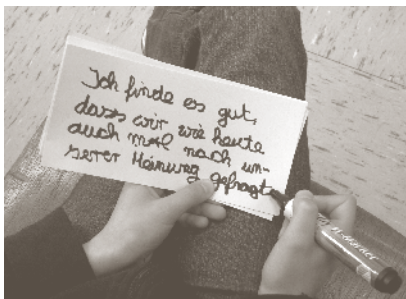 Ich finde es gut,
dass wir wie heute
auch mal nach un-
serer Meinung gefragt